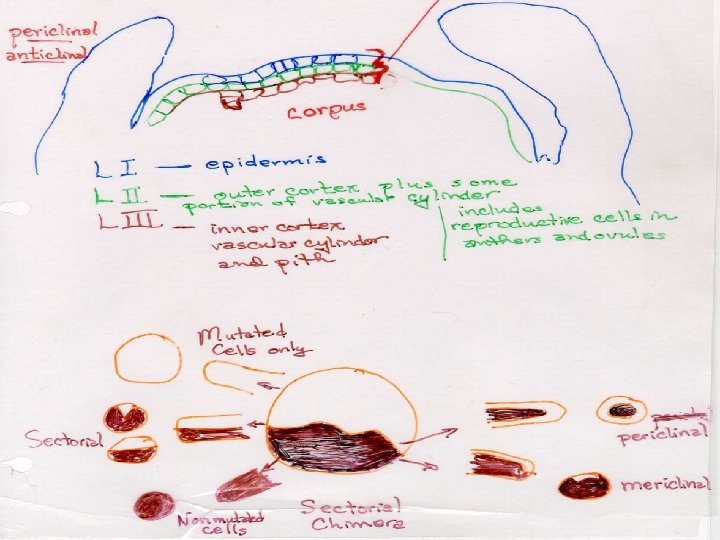 periclinal
anticlinal
corpus
L I — epidermis
L II — outer cortex plus some
portion of vascular cylinder
includes
reproductive cells in
anthers and ovules
L III — inner cortex
vascular cylinder
and pith
Mutated
Cells only
Sectorial
periclinal
mericlinal
Nonmutated
cells
Sectorial
Chimera